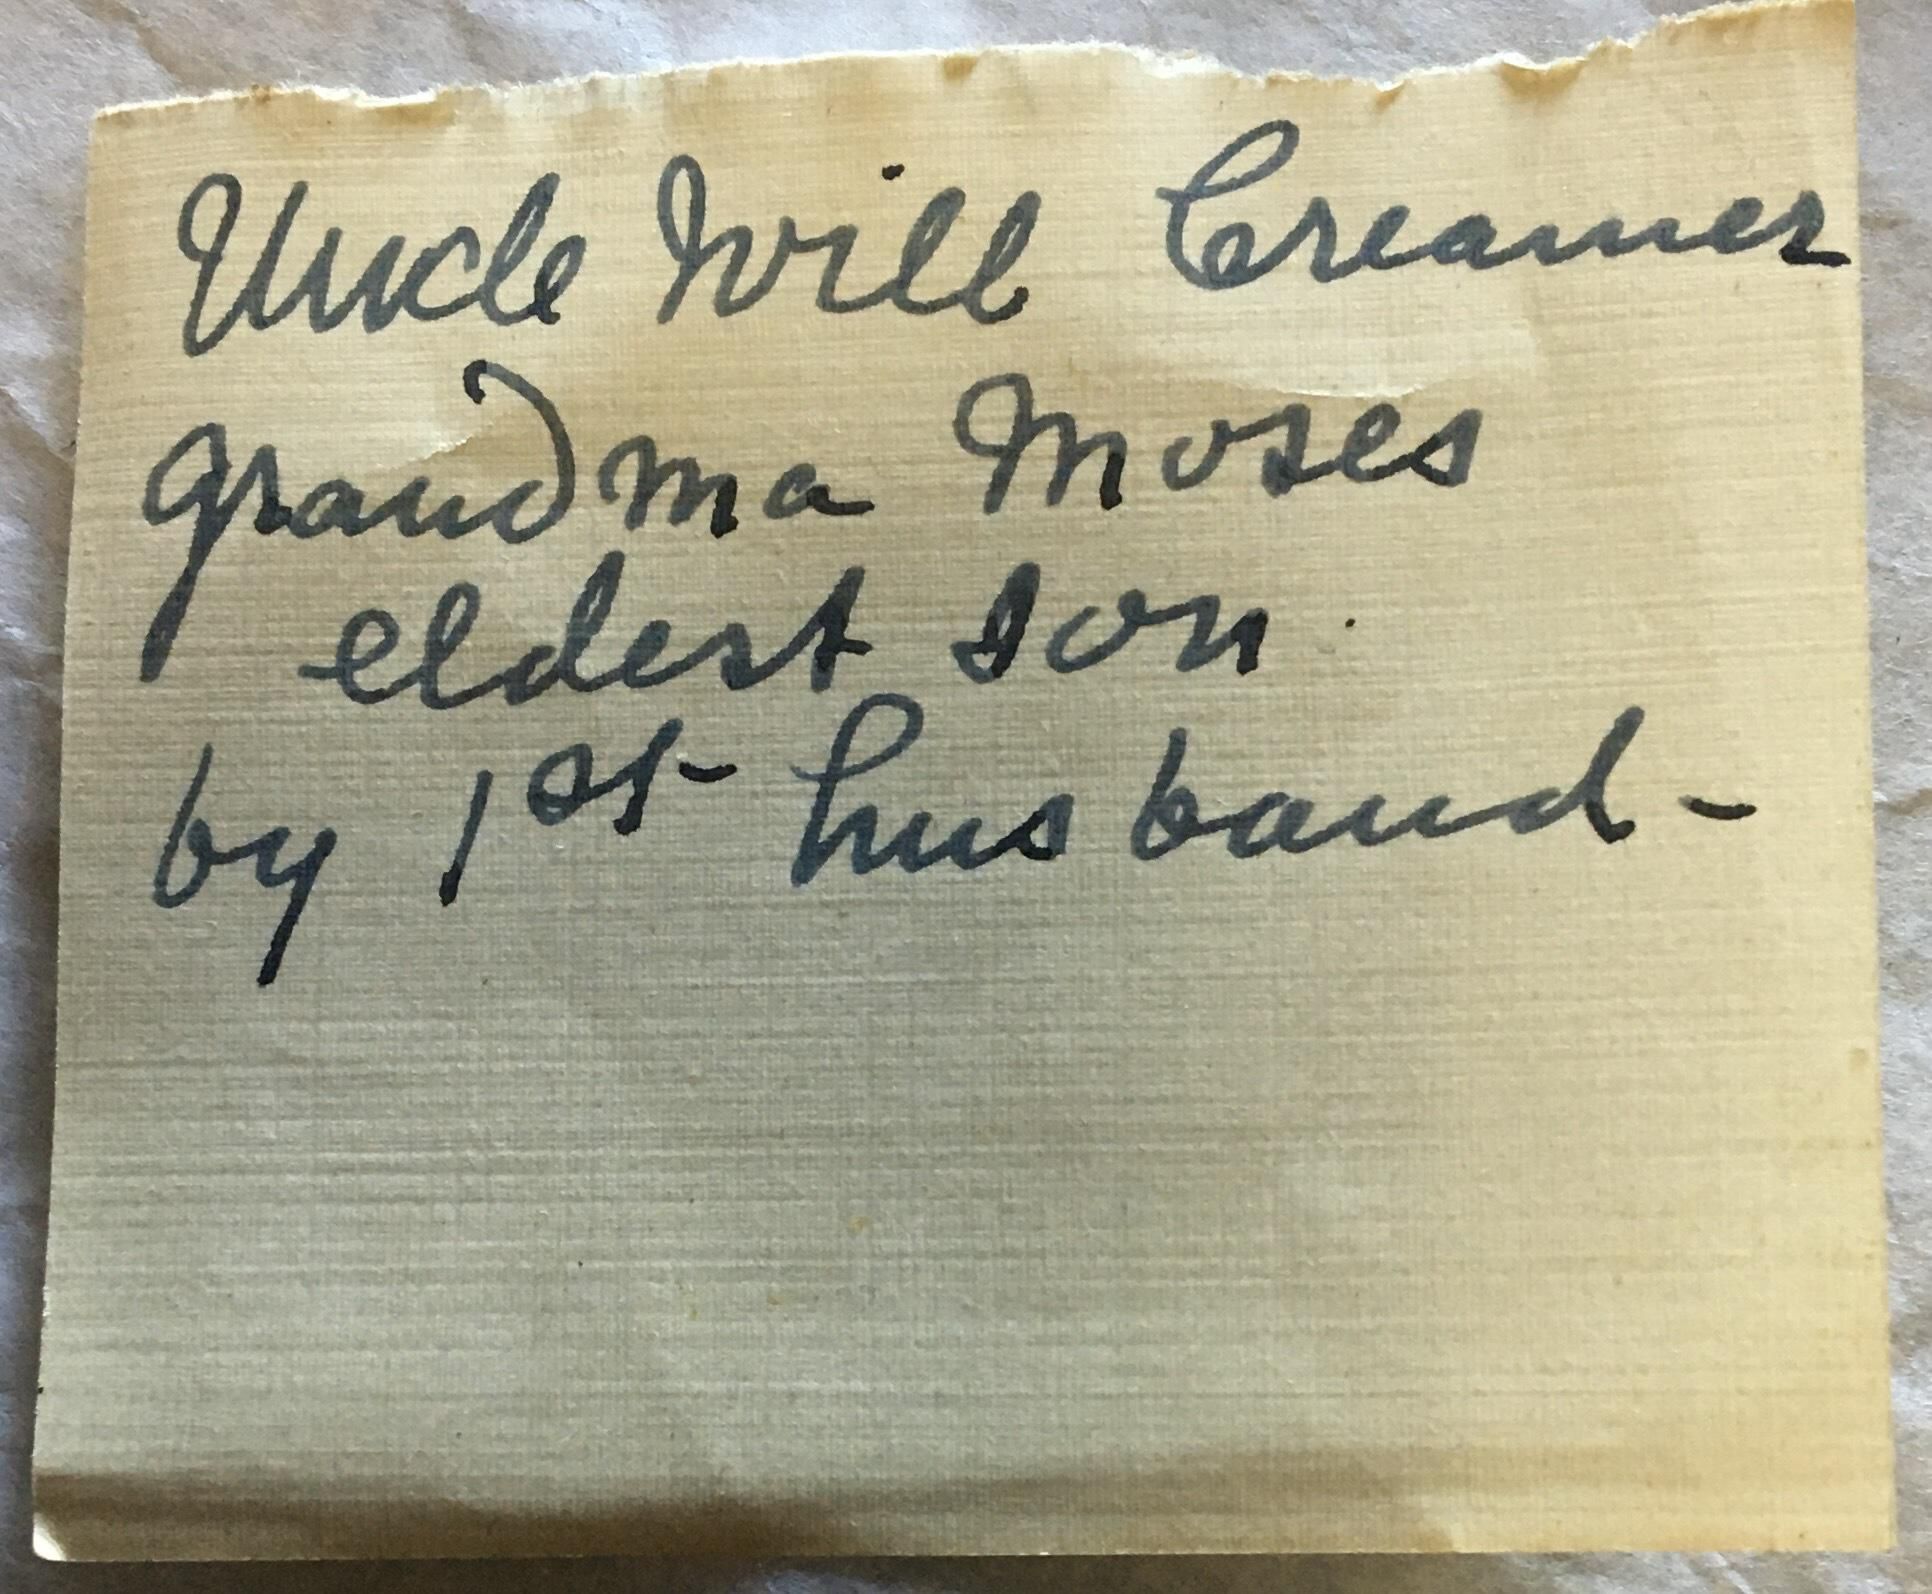 Uncle Will Creamer
Grandma Moses
eldest son
by 1st- husband-